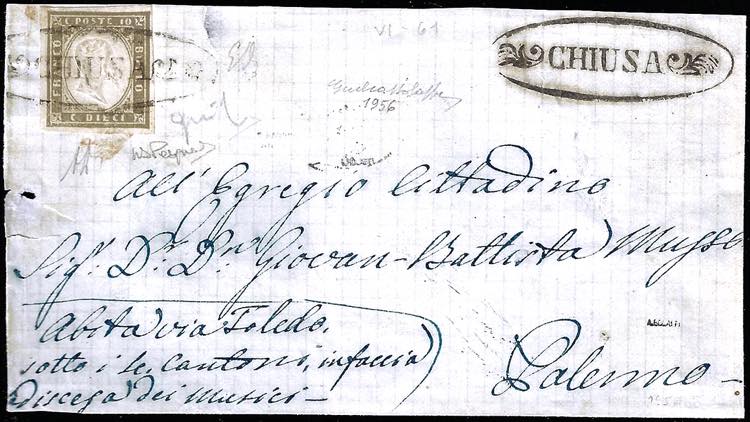 C. POSTE 10
FRANCO
BOLLO
C. DIECI
CHIUSA
VI - 61
CHIUSA
1956
All' Egregio Cittadino
Sig.r D.r D.n Giovan-Battista Musso
Abita via Toledo,
sotto i 4 Cantoni, in faccia
Discesa dei Musici -
Palermo -